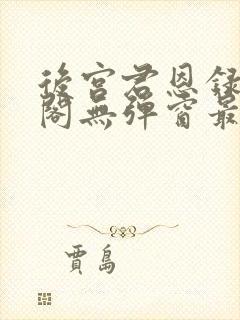 後宮君恩録
閣無彈窗最
賈島